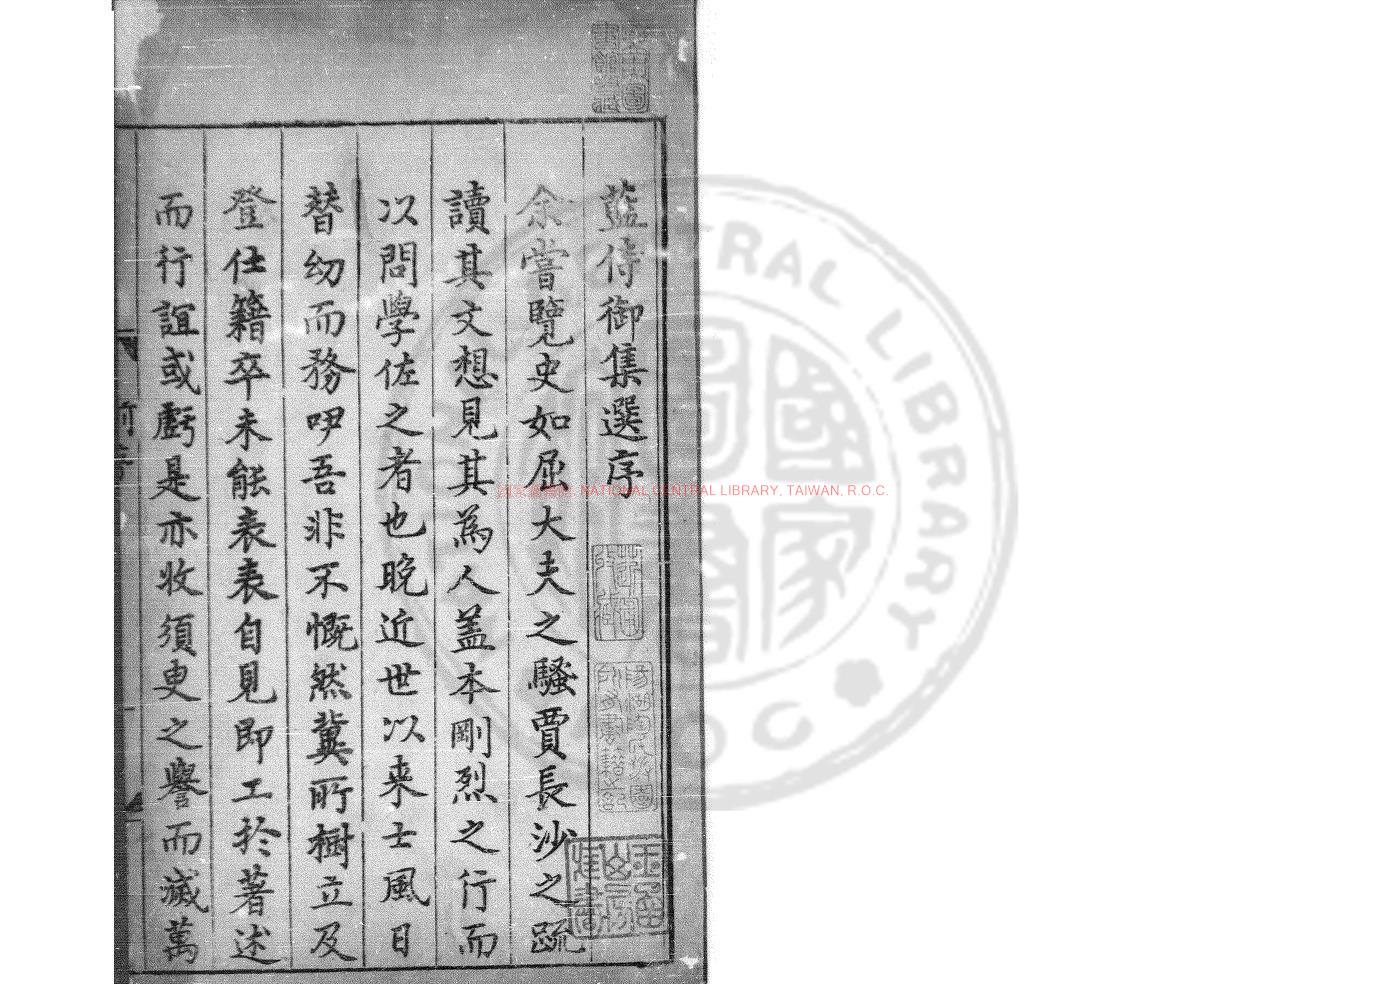 藍侍御集選序
余嘗覽史如屈大夫之騷賈長沙之疏
讀其文想見其為人蓋本剛烈之行而
以問學佐之者也晚近世以来士風日
替幼而務咿吾非不慨然冀所樹立及
登仕籍卒未能表表自見即工於著述
而行誼或虧是亦收須臾之譽而滅萬
國家圖書館 NATIONAL CENTRAL LIBRARY, TAIWAN, R.O.C.